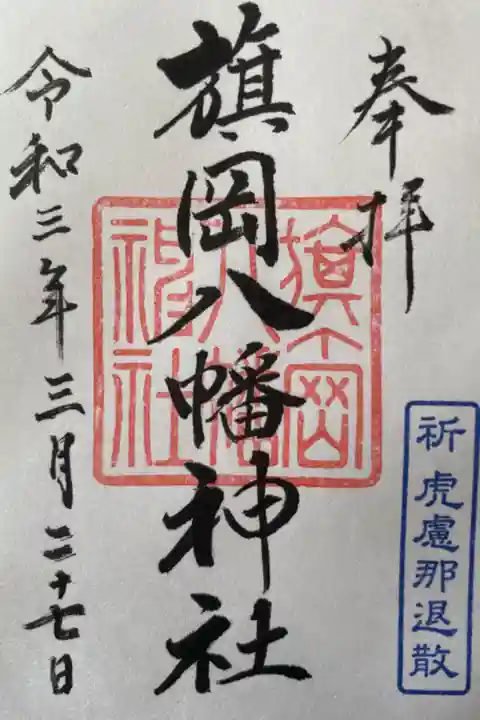 奉拝
旗岡八幡神社
旗岡
八幡
神社
令和三年三月二十七日
祈 虎慮那退散